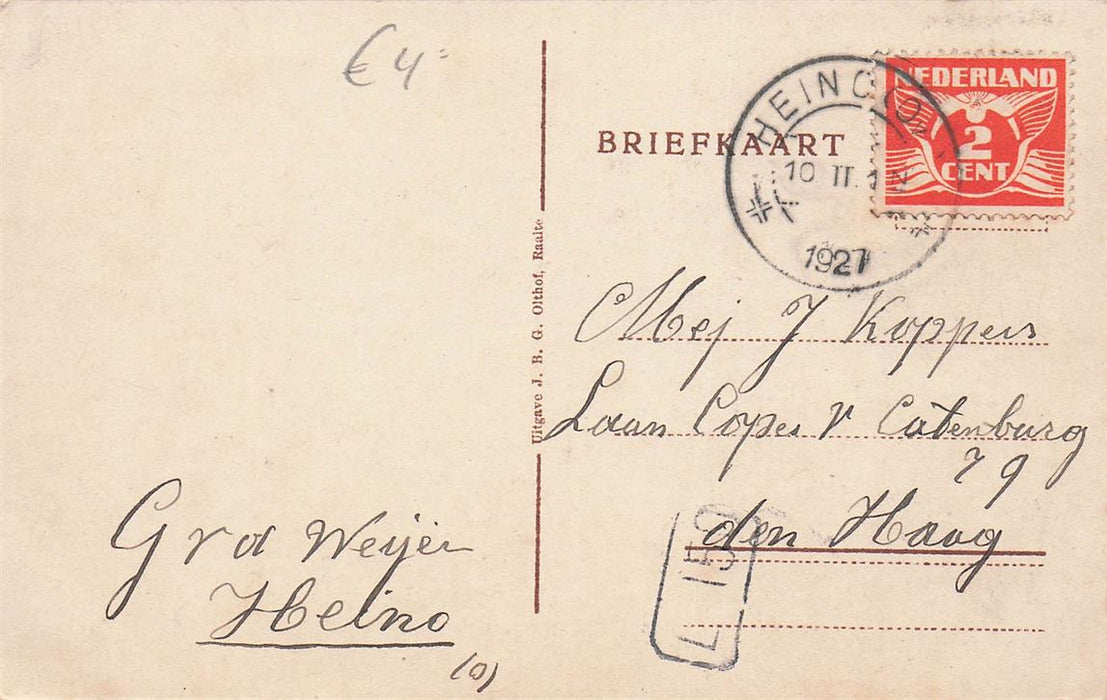 € 4
NEDERLAND
2
CENT
HEINO (OV.)
10 II.
1927
BRIEFKAART
Uitgave J. B. G. Olthof, Raalte
Mej J Koppers
Laan Copes v Catenburg
79
den Haag
Grd Weijer
Heino
(O)
L 150